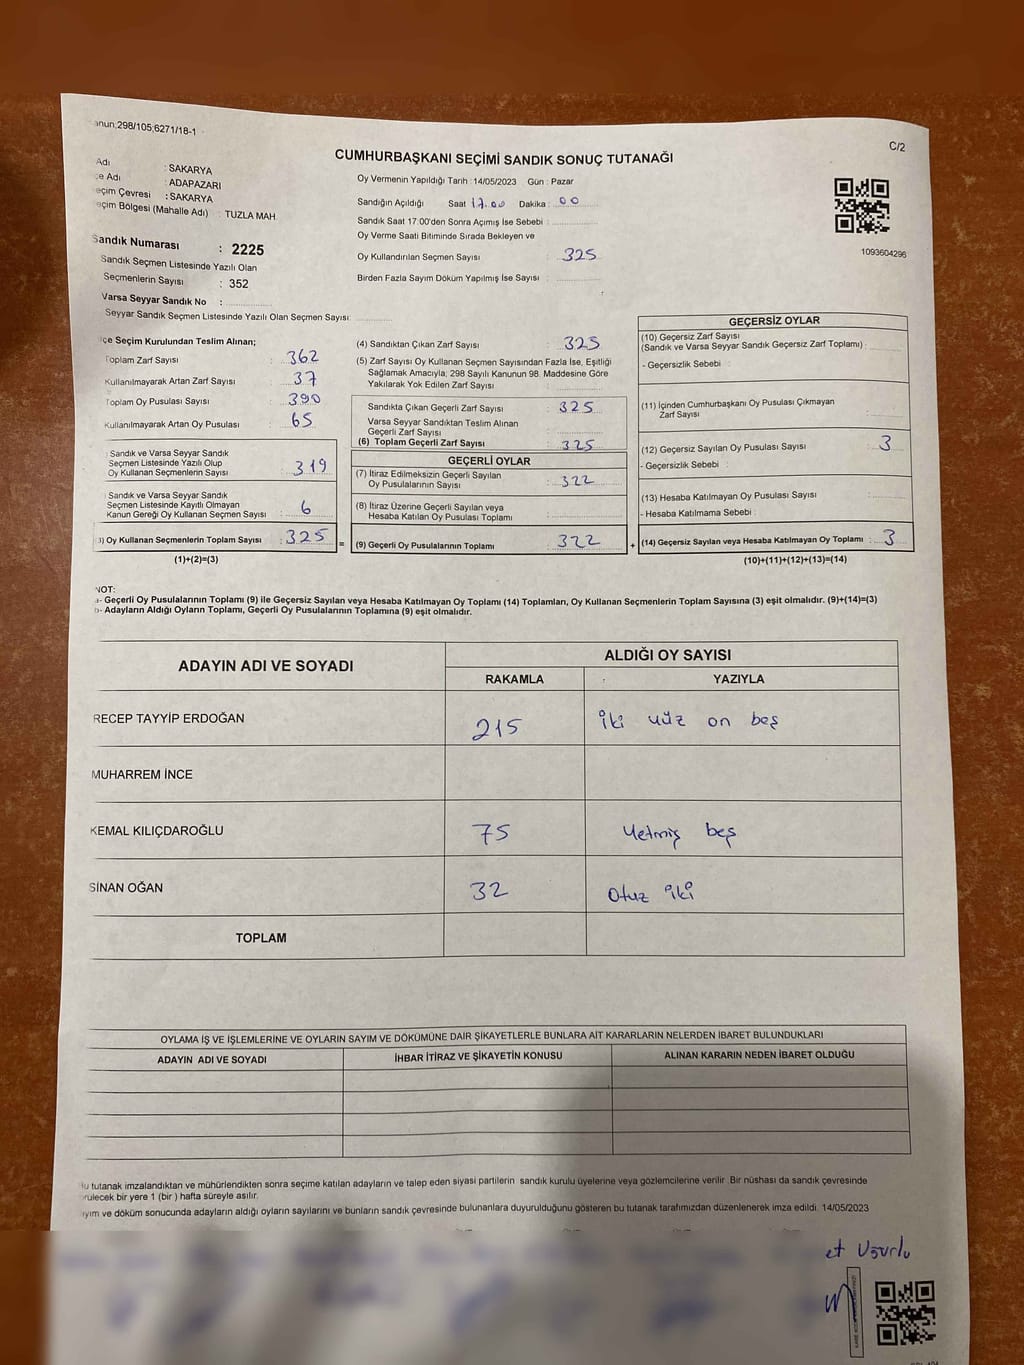 anun;298/105;6271/18-1
C/2
CUMHURBAŞKANI SEÇİMİ SANDIK SONUÇ TUTANAĞI
Adı : SAKARYA
çe Adı : ADAPAZARI
eçim Çevresi : SAKARYA
eçim Bölgesi (Mahalle Adı) : TUZLA MAH.
Oy Vermenin Yapıldığı Tarih : 14/05/2023 Gün : Pazar
Sandığın Açıldığı Saat 17.00 Dakika : 00
Sandık Saat 17:00'den Sonra Açımış İse Sebebi :
Oy Verme Saati Bitiminde Sırada Bekleyen ve
Oy Kullandırılan Seçmen Sayısı : 325
Birden Fazla Sayım Döküm Yapılmış İse Sayısı :
1093604296
Sandık Numarası : 2225
Sandık Seçmen Listesinde Yazılı Olan
Seçmenlerin Sayısı : 352
Varsa Seyyar Sandık No :
Seyyar Sandık Seçmen Listesinde Yazılı Olan Seçmen Sayısı:
lçe Seçim Kurulundan Teslim Alınan;
Toplam Zarf Sayısı : 362
Kullanılmayarak Artan Zarf Sayısı : 37
Toplam Oy Pusulası Sayısı : 390
Kullanılmayarak Artan Oy Pusulası : 65
Sandık ve Varsa Seyyar Sandık
Seçmen Listesinde Yazılı Olup
Oy Kullanan Seçmenlerin Sayısı : 319
Sandık ve Varsa Seyyar Sandık
Seçmen Listesinde Kayıtlı Olmayan
Kanun Gereği Oy Kullanan Seçmen Sayısı : 6
3) Oy Kullanan Seçmenlerin Toplam Sayısı : 325 =
(1)+(2)=(3)
(4) Sandıktan Çıkan Zarf Sayısı : 325
(5) Zarf Sayısı Oy Kullanan Seçmen Sayısından Fazla İse, Eşitliği
Sağlamak Amacıyla; 298 Sayılı Kanunun 98. Maddesine Göre
Yakılarak Yok Edilen Zarf Sayısı :
Sandıkta Çıkan Geçerli Zarf Sayısı : 325
Varsa Seyyar Sandıktan Teslim Alınan
Geçerli Zarf Sayısı :
(6) Toplam Geçerli Zarf Sayısı : 325
GEÇERLİ OYLAR
(7) İtiraz Edilmeksizin Geçerli Sayılan
Oy Pusulalarının Sayısı : 322
(8) İtiraz Üzerine Geçerli Sayılan veya
Hesaba Katılan Oy Pusulası Toplamı :
(9) Geçerli Oy Pusulalarının Toplamı : 322 +
GEÇERSİZ OYLAR
(10) Geçersiz Zarf Sayısı
(Sandık ve Varsa Seyyar Sandık Geçersiz Zarf Toplamı) :
- Geçersizlik Sebebi :
(11) İçinden Cumhurbaşkanı Oy Pusulası Çıkmayan
Zarf Sayısı :
(12) Geçersiz Sayılan Oy Pusulası Sayısı : 3
- Geçersizlik Sebebi :
(13) Hesaba Katılmayan Oy Pusulası Sayısı :
- Hesaba Katılmama Sebebi :
(14) Geçersiz Sayılan veya Hesaba Katılmayan Oy Toplamı : 3
(10)+(11)+(12)+(13)=(14)
NOT:
a- Geçerli Oy Pusulalarının Toplamı (9) ile Geçersiz Sayılan veya Hesaba Katılmayan Oy Toplamı (14) Toplamları, Oy Kullanan Seçmenlerin Toplam Sayısına (3) eşit olmalıdır. (9)+(14)=(3)
b- Adayların Aldığı Oyların Toplamı, Geçerli Oy Pusulalarının Toplamına (9) eşit olmalıdır.
ADAYIN ADI VE SOYADI ALDIĞI OY SAYISI
RAKAMLA YAZIYLA
RECEP TAYYİP ERDOĞAN 215 iki yüz on beş
MUHARREM İNCE
KEMAL KILIÇDAROĞLU 75 Yetmiş beş
SİNAN OĞAN 32 Otuz iki
TOPLAM
OYLAMA İŞ VE İŞLEMLERİNE VE OYLARIN SAYIM VE DÖKÜMÜNE DAİR ŞİKAYETLERLE BUNLARA AİT KARARLARIN NELERDEN İBARET BULUNDUKLARI
ADAYIN ADI VE SOYADI İHBAR İTİRAZ VE ŞİKAYETİN KONUSU ALINAN KARARIN NEDEN İBARET OLDUĞU
u tutanak imzalandıktan ve mühürlendikten sonra seçime katılan adayların ve talep eden siyasi partilerin sandık kurulu üyelerine veya gözlemcilerine verilir. Bir nüshası da sandık çevresinde
rülecek bir yere 1 (bir ) hafta süreyle asılır.
ayım ve döküm sonucunda adayların aldığı oyların sayılarını ve bunların sandık çevresinde bulunanlara duyurulduğunu gösteren bu tutanak tarafımızdan düzenlenerek imza edildi. 14/05/2023
et Uğurlu